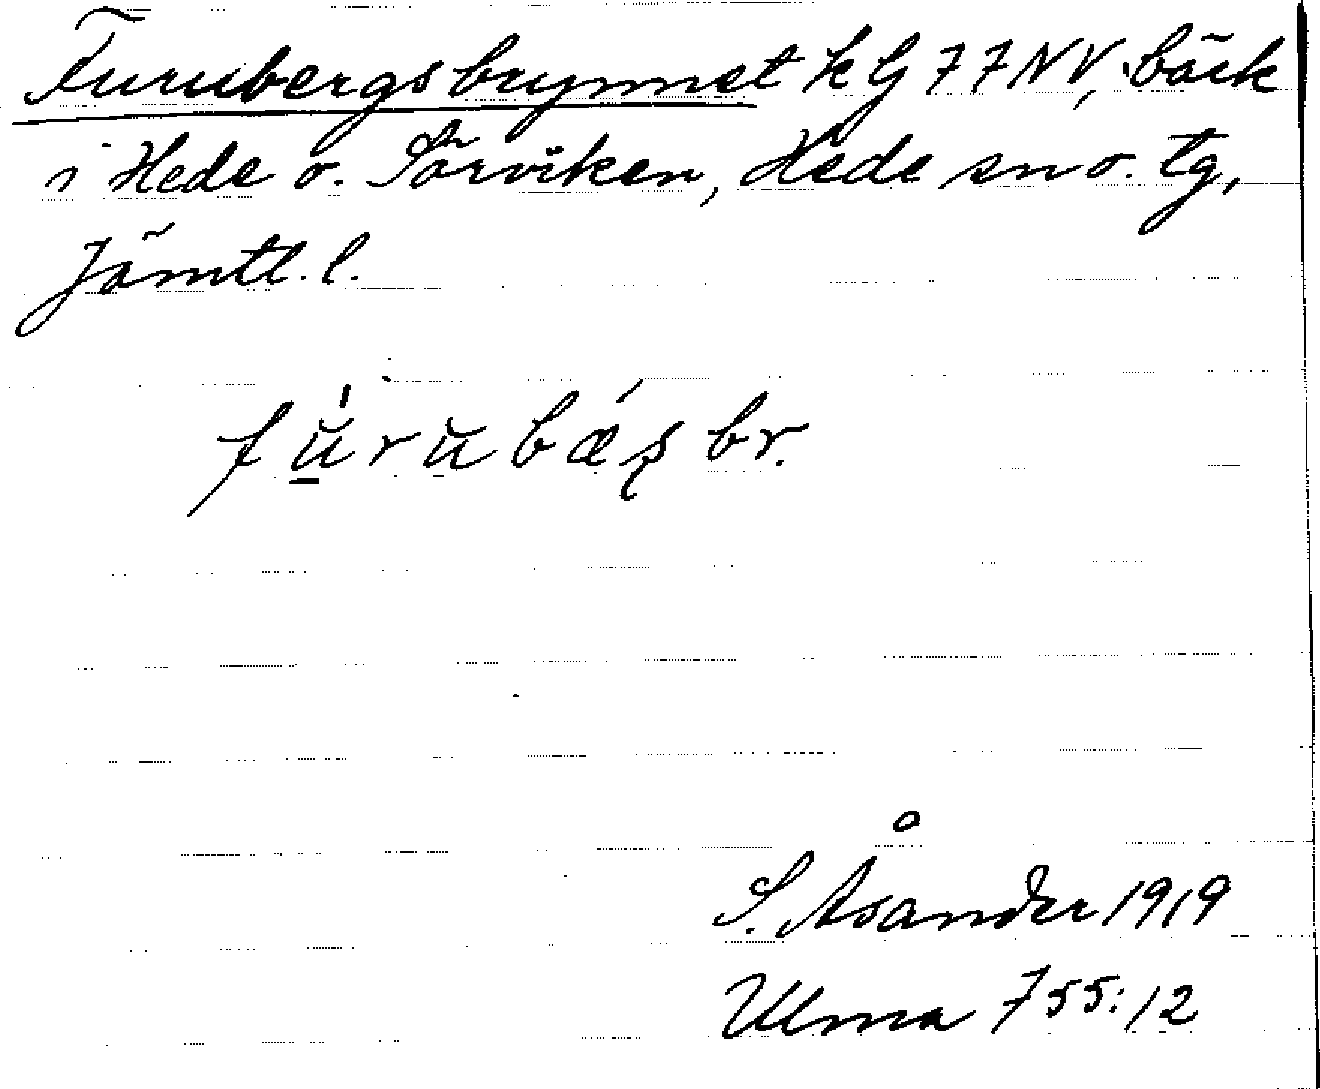 Furubergsbrynnet kG 77NV, bäck
i Hede o. Särviken, Hede sn o. tg,
Jämtl. l.
fu̲̍rubǽʂ br.
S. Åsander 1919
Ulma 755:12